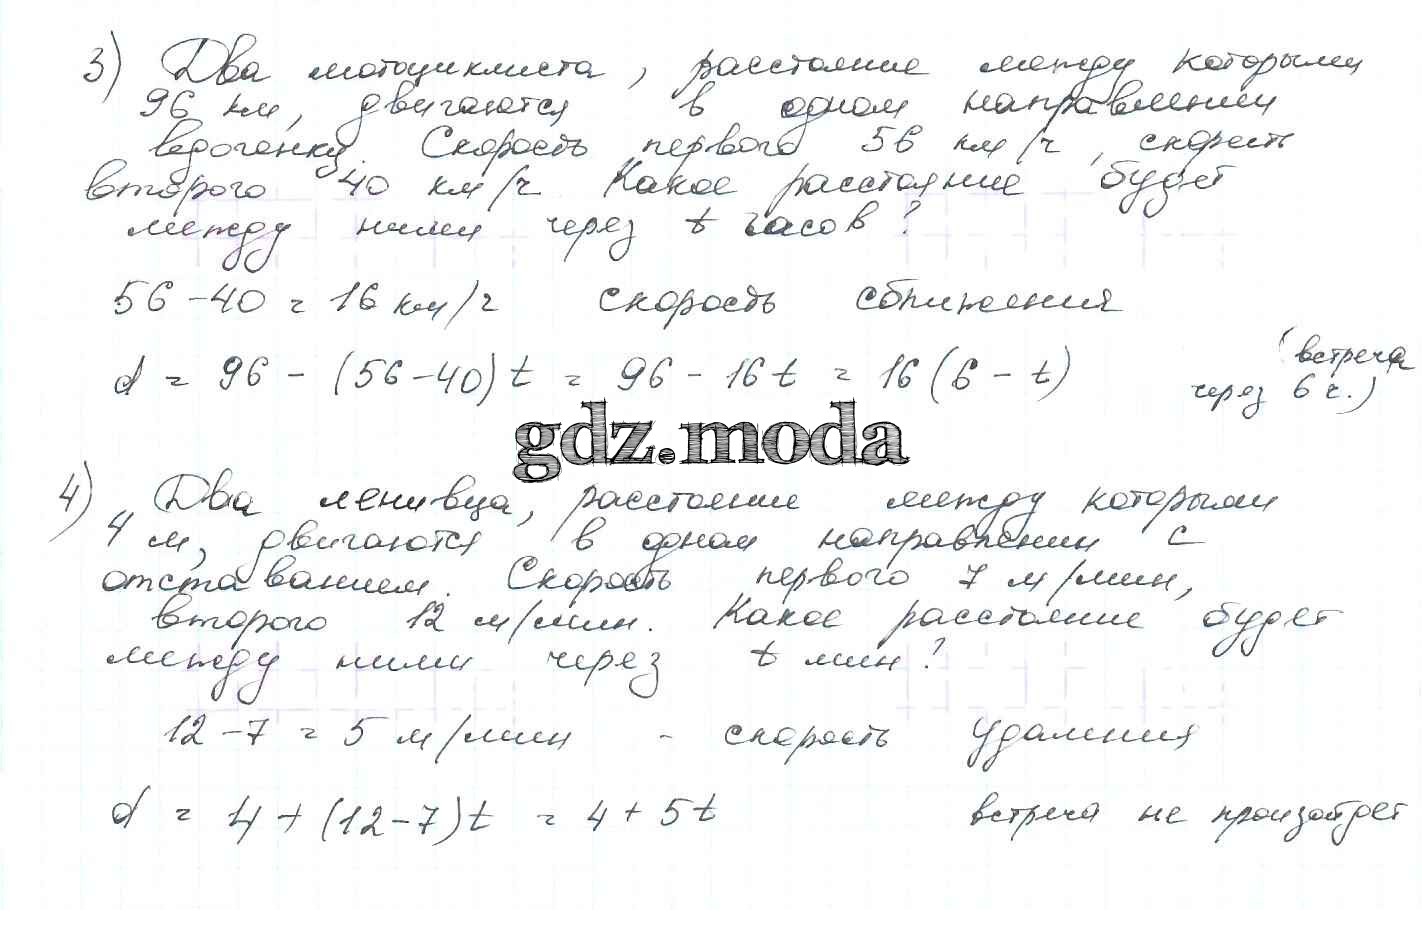 3) Два мотоциклиста, расстояние между которыми
96 км, двигаются в одном направлении
вдогонку. Скорость первого 56 км/ч, скорость
второго 40 км/ч. Какое расстояние будет
между ними через t часов?
56 - 40 = 16 км/ч скорость сближения
d = 96 - (56 - 40)t = 96 - 16t = 16(6 - t) (встреча
через 6 ч.)
gdz.moda
4) Два ленивца, расстояние между которыми
4 м, двигаются в одном направлении с
отставанием. Скорость первого 7 м/мин,
второго 12 м/мин. Какое расстояние будет
между ними через t мин?
12 - 7 = 5 м/мин - скорость удаления
d = 4 + (12 - 7)t = 4 + 5t встреча не произойдет